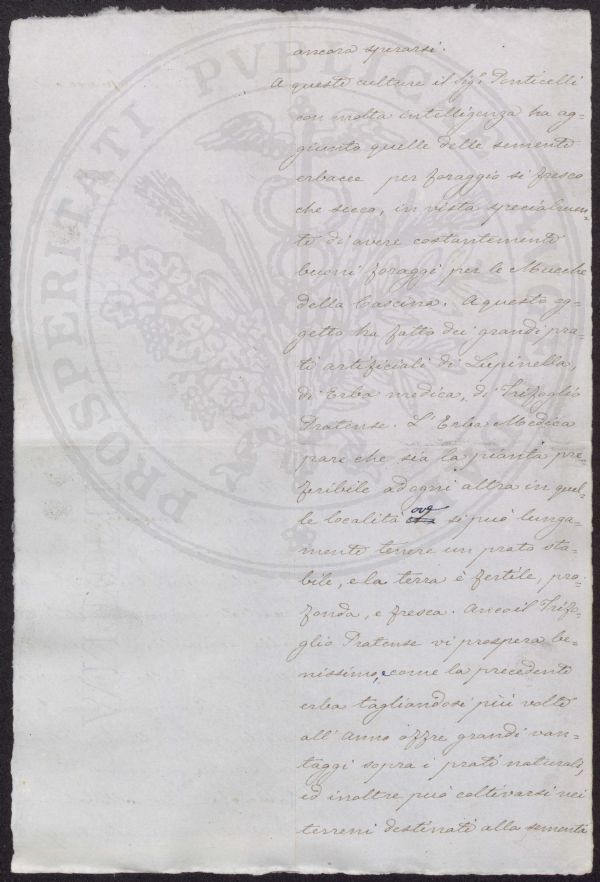 ancora sperarsi.
A queste culture il Sigr. Ponticelli
con molta intelligenza ha ag=
giunto quelle delle sementi
erbacee per foraggio sì fresco
che secco, in vista specialmen=
te di avere costantemente
buoni foraggi per le Mucche
della Cascina. A questo og=
getto ha fatto dei grandi pra=
ti artificiali di Lupinella,
di Erba medica, di Trifoglio
Pratense. L'Erba Medica
pare che sia la pianta pre=
feribile ad ogni altra in quel=
le località ove si può lunga=
mente tenere un prato sta=
bile, e la terra è fertile, pro=
fonda, e fresca. Anco il Trifo=
glio Pratense vi prospera be=
nissimo, e come la precedente
erba tagliandosi più volte
all'Anno offre grandi van=
taggi sopra i prati naturali,
ed inoltre può coltivarsi nei
terreni destinati alla sementa
PROSPERITATI PVBLICAE